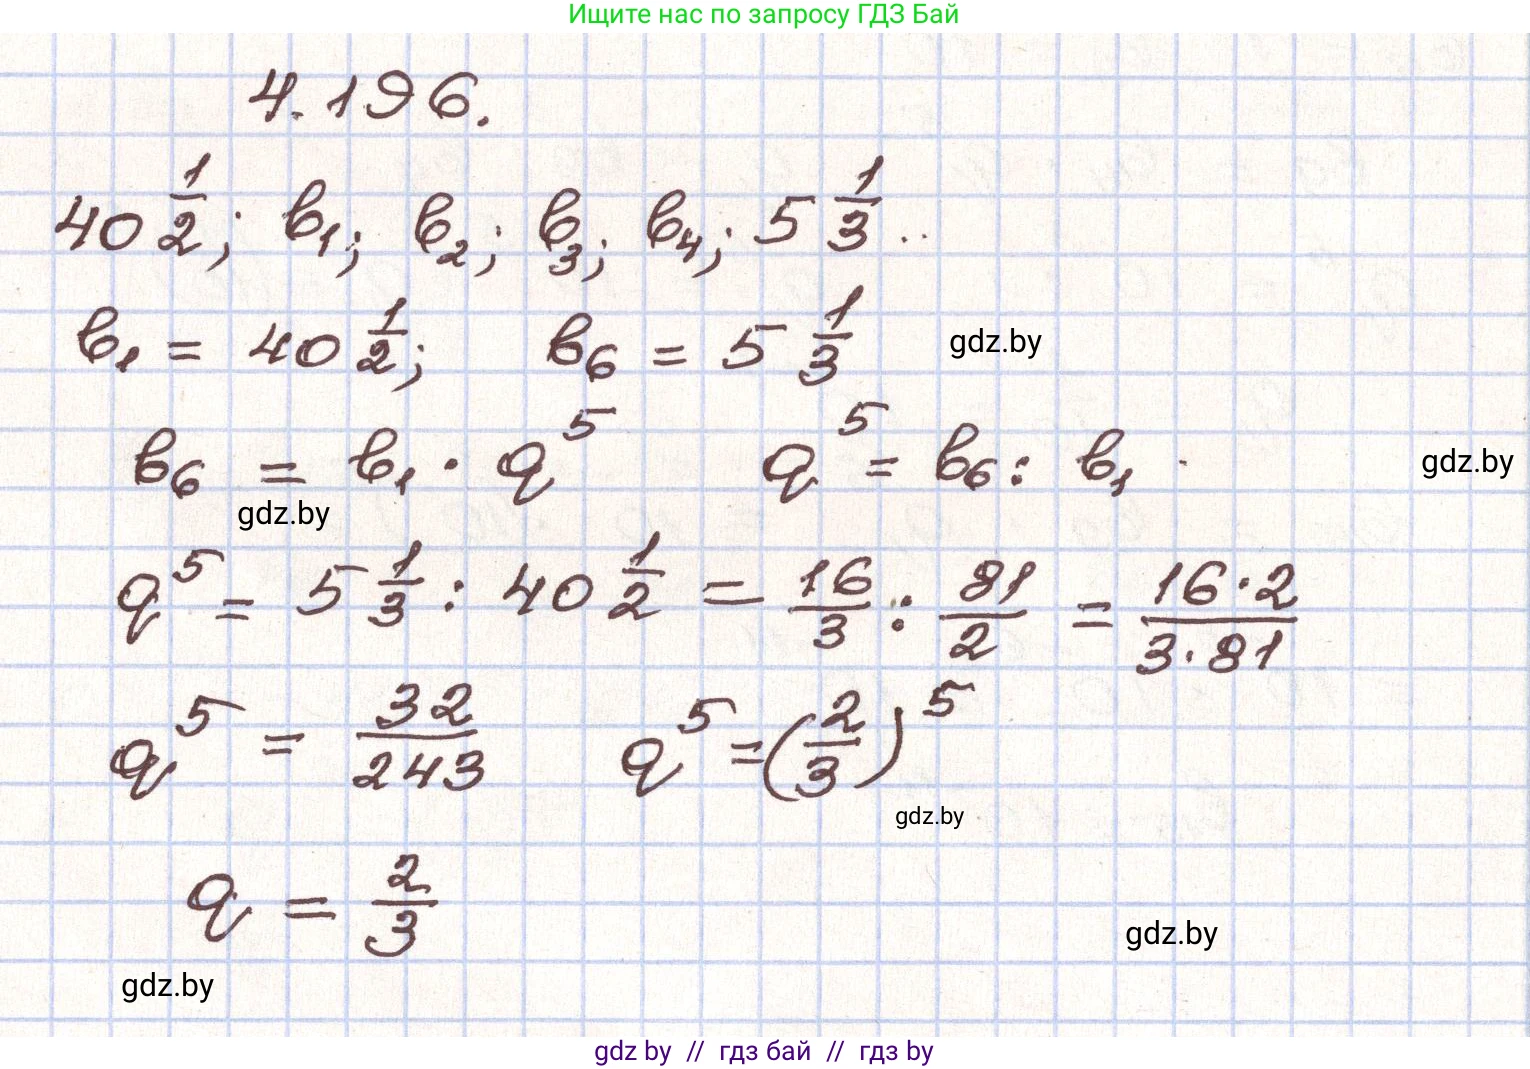 Ищите нас по запросу ГДЗ Бай
4.196.
40 1/2; в₁; в₂; в₃; в₄; 5 1/3 ..
в₁ = 40 1/2; в₆ = 5 1/3
gdz.by
в₆ = в₁ · q⁵ q⁵ = в₆ : в₁
gdz.by
gdz.by
q⁵ = 5 1/3 : 40 1/2 = 16/3 : 81/2 = 16·2/3·81
q⁵ = 32/243 q⁵ = (2/3)⁵
gdz.by
q = 2/3
gdz.by
gdz.by
gdz by // гдз бай // гдз by